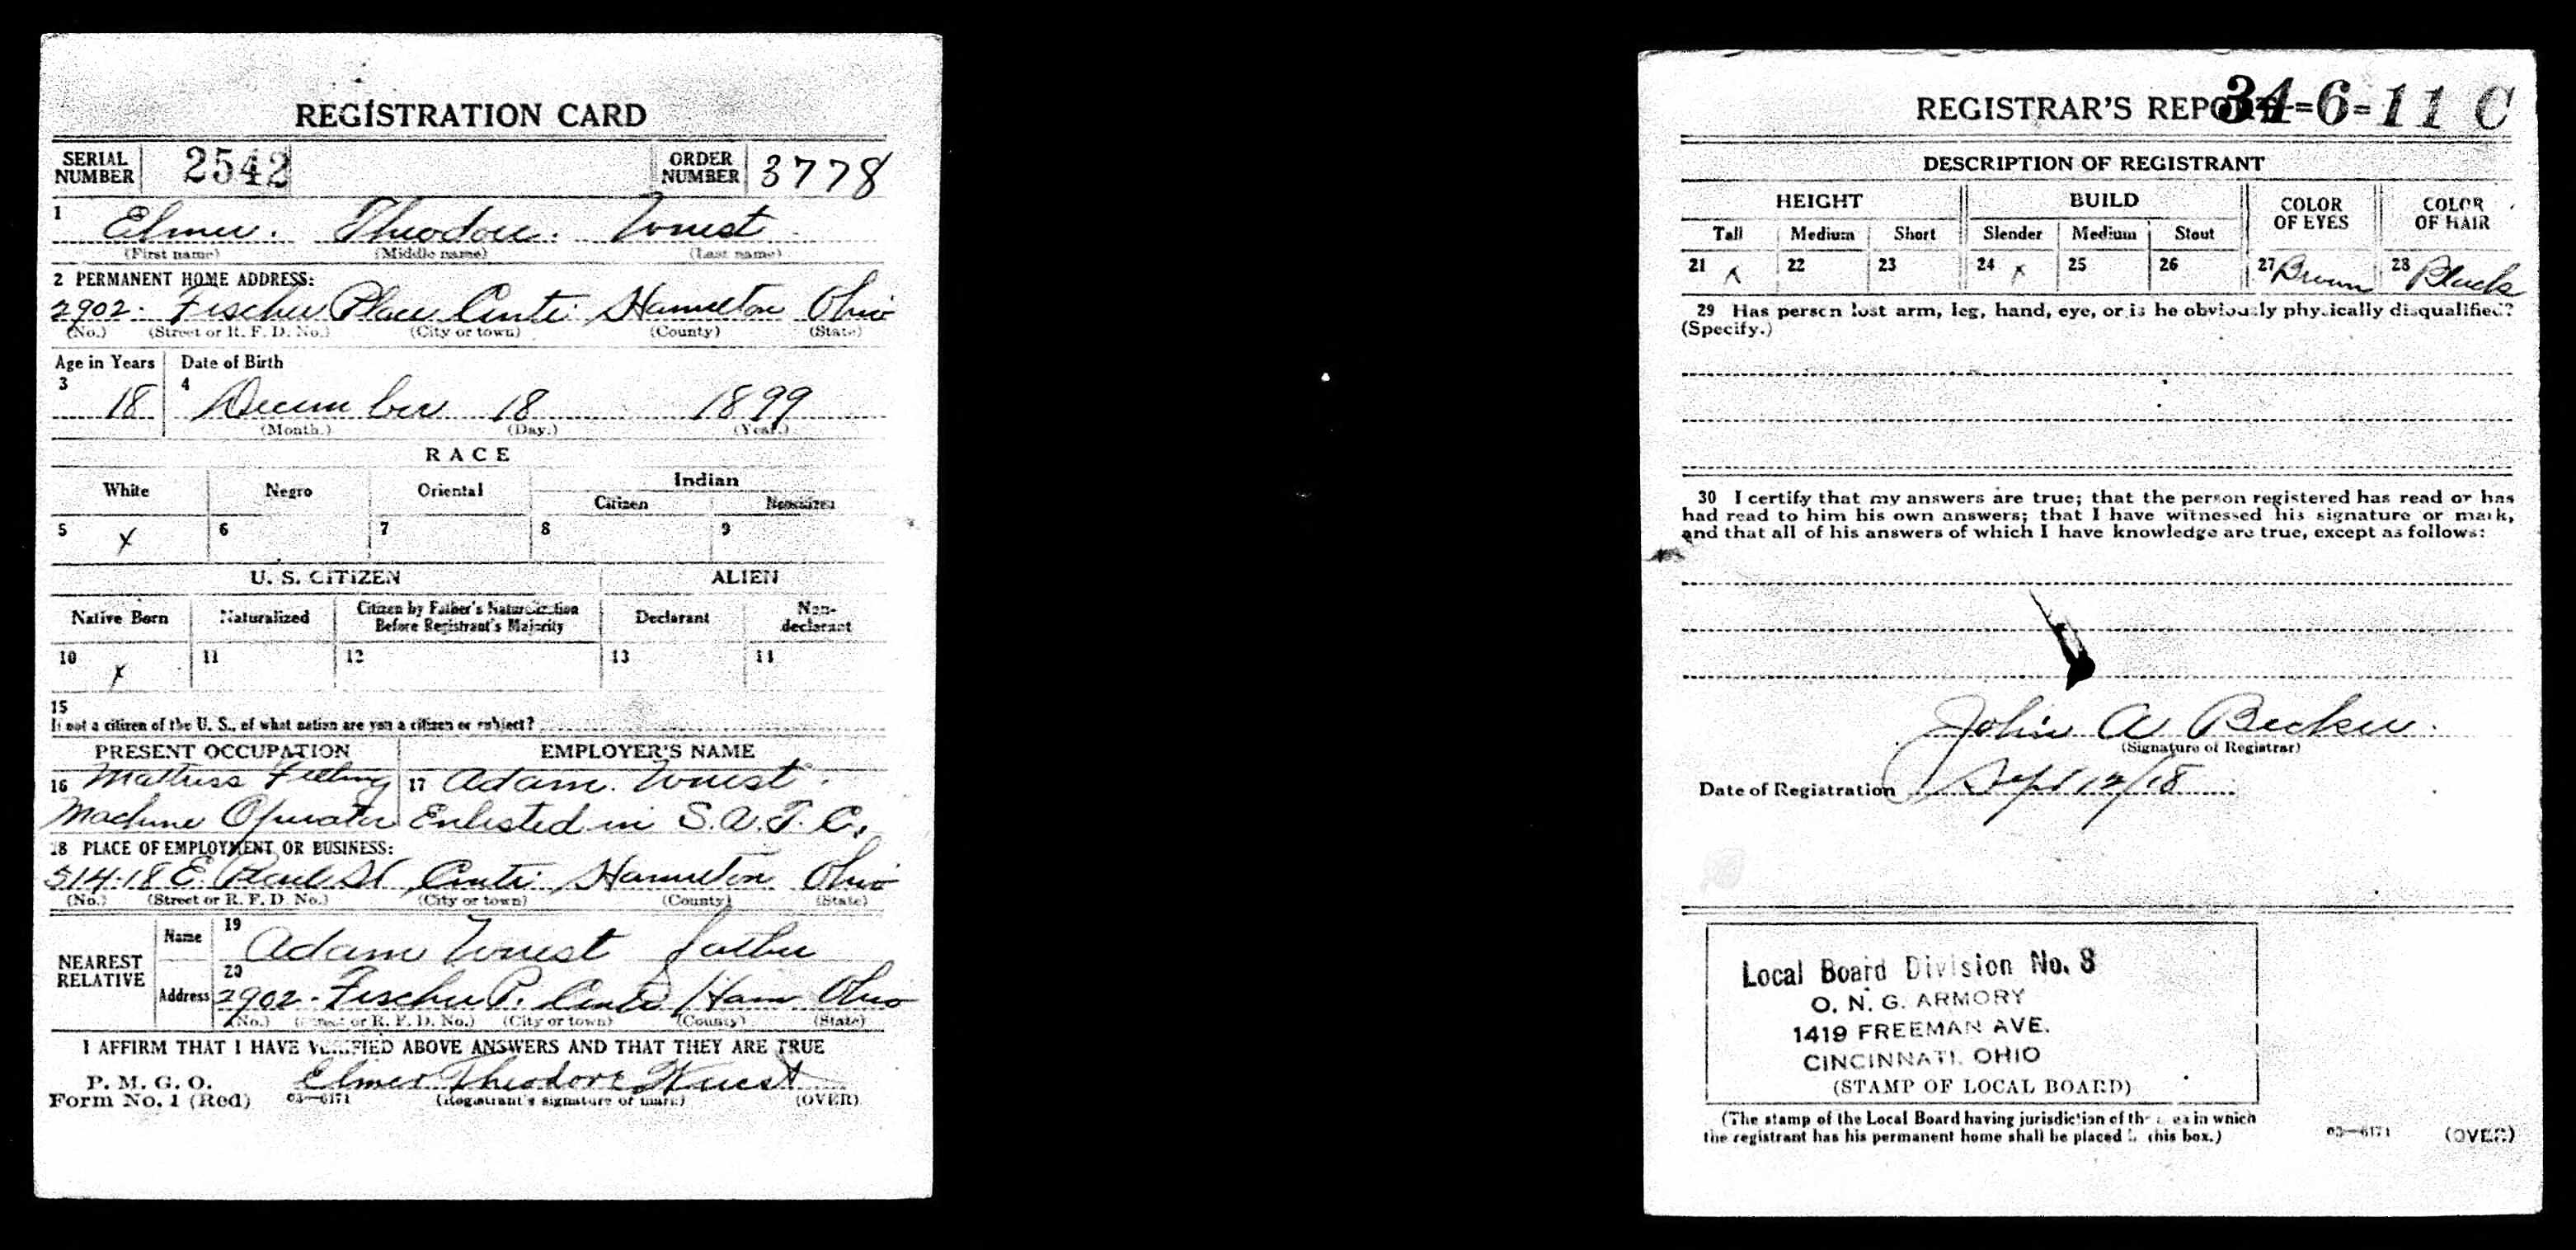 REGISTRATION CARD
SERIAL NUMBER 2542 ORDER NUMBER 3778
1 Elmer. Theodore. Wuest
(First name) (Middle name) (Last name)
2 PERMANENT HOME ADDRESS:
2902. Fischer Place Cinti Hamilton Ohio
(No.) (Street or R. F. D. No.) (City or town) (County) (State)
Age in Years Date of Birth
3 18 4 December 18 1899
(Month.) (Day.) (Year.)
RACE
White Negro Oriental Indian
Citizen Noncitizen
5 x 6 7 8 9
U. S. CITIZEN ALIEN
Native Born Naturalized Citizen by Father's Naturalization Before Registrant's Majority Declarant Non-declarant
10 x 11 12 13 14
15
If not a citizen of the U. S., of what nation are you a citizen or subject?
PRESENT OCCUPATION EMPLOYER'S NAME
16 Mattress Filling 17 Adam. Wuest.
Machine Operator Enlisted in S.A.T.C.
18 PLACE OF EMPLOYMENT OR BUSINESS:
514-18 E. Pearl St Cinti Hamilton Ohio
(No.) (Street or R. F. D. No.) (City or town) (County) (State)
NEAREST RELATIVE
Name 19 Adam Wuest father
Address 20 2902. Fischer P. Cinti Ham Ohio
(No.) (Street or R. F. D. No.) (City or town) (County) (State)
I AFFIRM THAT I HAVE VERIFIED ABOVE ANSWERS AND THAT THEY ARE TRUE
P. M. G. O.
Form No. 1 (Red) 03—6171 Elmer Theodore Wuest
(Registrant's signature or mark) (OVER)
REGISTRAR'S REPORT 34-6-11 C
DESCRIPTION OF REGISTRANT
HEIGHT BUILD COLOR OF EYES COLOR OF HAIR
Tall Medium Short Slender Medium Stout
21 x 22 23 24 x 25 26 27 Brown 28 Black
29 Has person lost arm, leg, hand, eye, or is he obviously physically disqualified?
(Specify.)
30 I certify that my answers are true; that the person registered has read or has
had read to him his own answers; that I have witnessed his signature or mark,
and that all of his answers of which I have knowledge are true, except as follows:
John A Becker.
(Signature of Registrar)
Date of Registration Sept 12/18
Local Board Division No. 8
O. N. G. ARMORY
1419 FREEMAN AVE.
CINCINNATI, OHIO
(STAMP OF LOCAL BOARD)
(The stamp of the Local Board having jurisdiction of the area in which
the registrant has his permanent home shall be placed in this box.)
03—6171 (OVER)